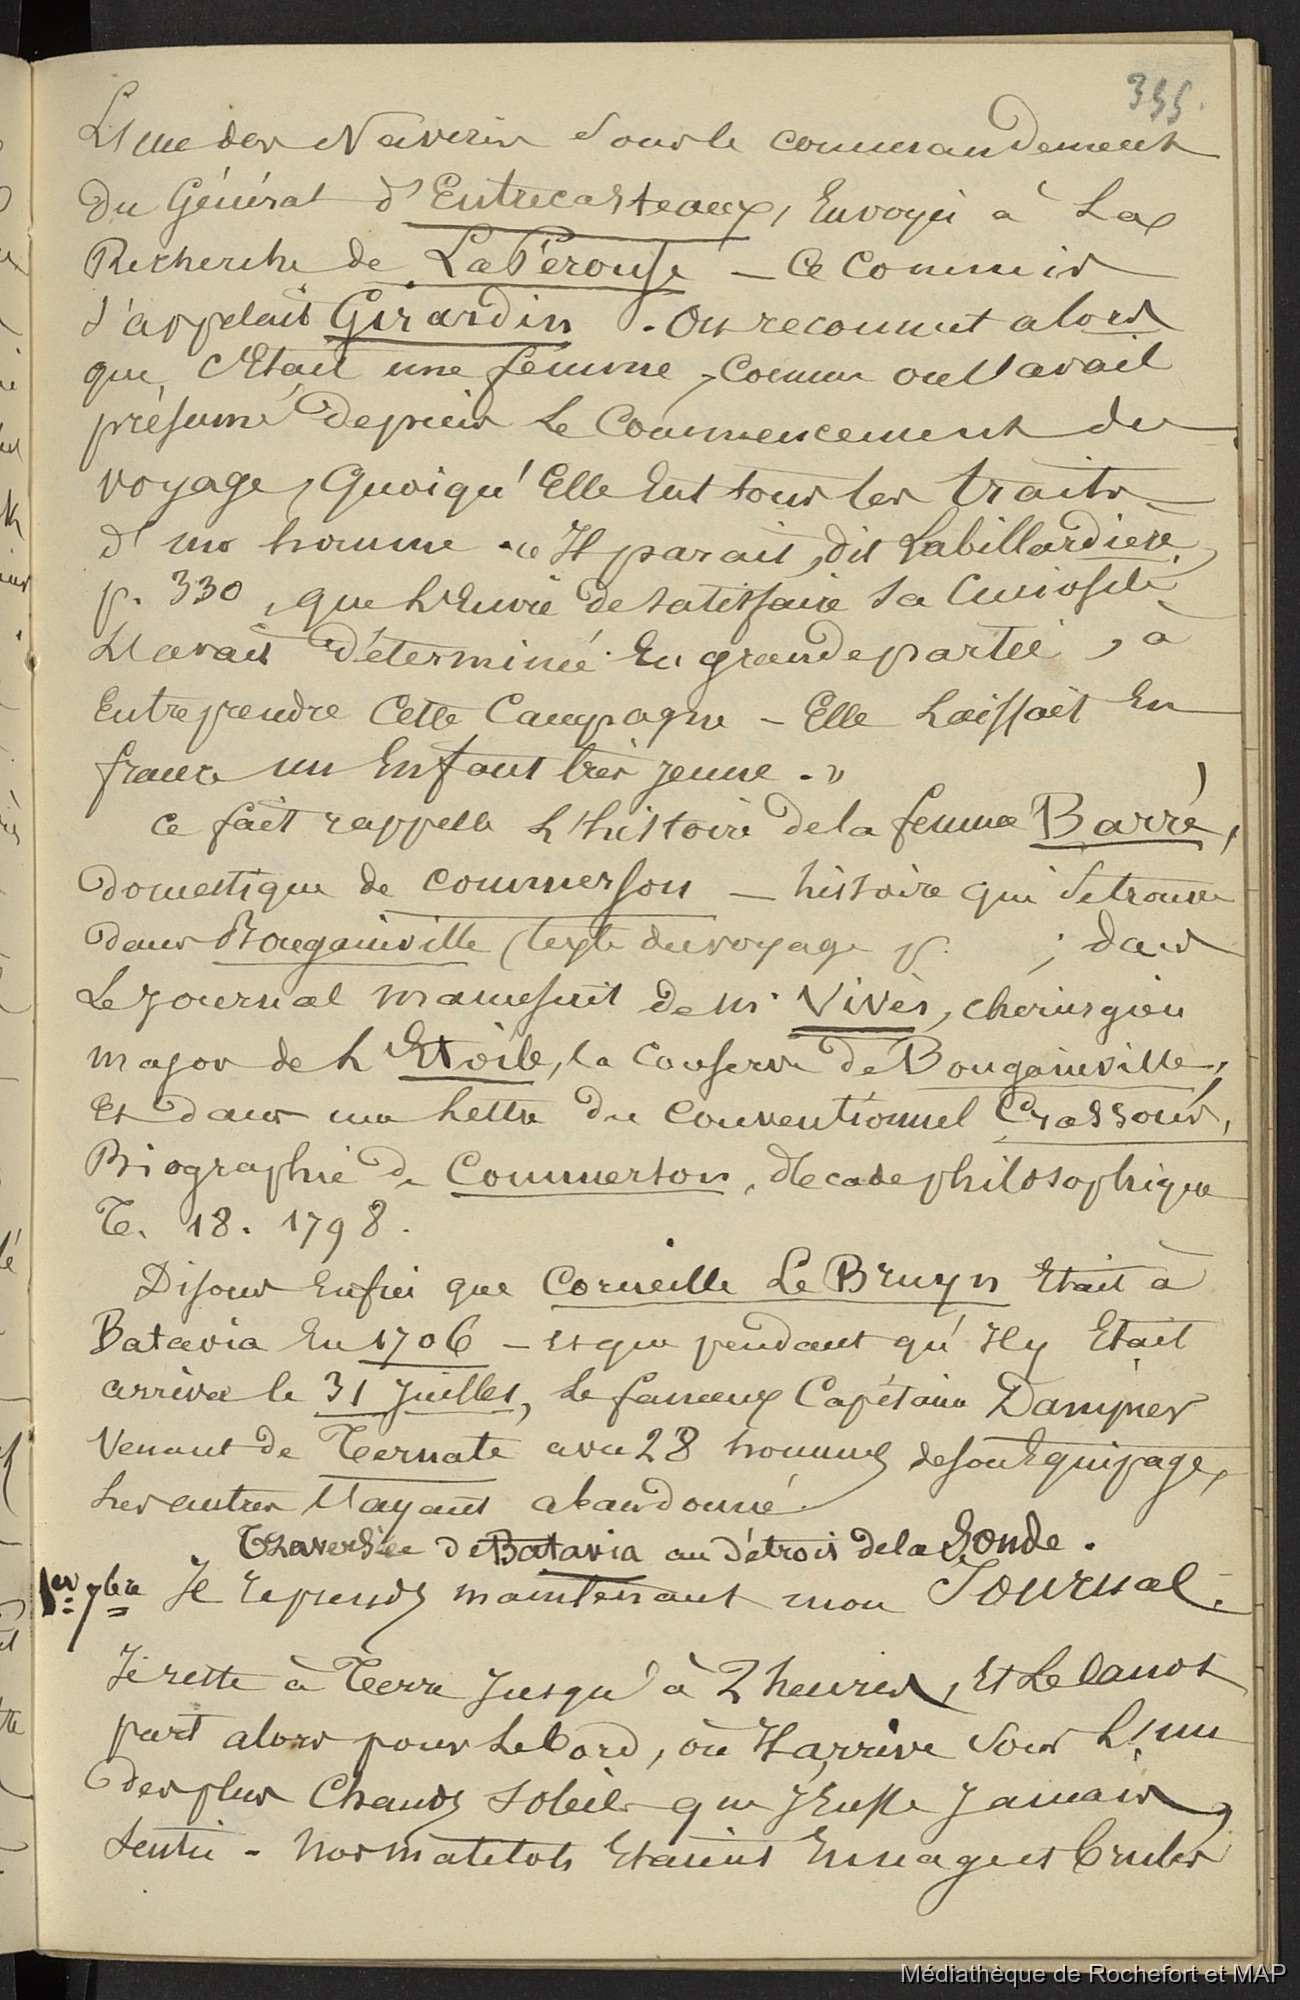 355.
L'une des Navires sous le commandement
du Général d'Entrecasteaux, Envoyés à La
Recherche de La Pérouse — Ce commis
s'appelait Girardin. On reconnut alors
que c'Etait une femme, comme on l'avait
présumé depuis Le Commencement du
voyage, Quoiqu'Elle Eut tous les traits
d'un homme. « Il parait, dit Labillardière,
p. 330, que L'Envie de satisfaire sa Curiosité
L'avait déterminée En grande partie, à
Entreprendre Cette Campagne — Elle Laissait En
france un Enfant très jeune. »
Ce fait rappelle L'histoire de la femme Barré,
domestique de Commerson — histoire qui se trouve
dans Bougainville (texte du voyage p. ; dans
Le Journal manuscrit de Mr Vivès, chirurgien
major de L'Etoile, la conserve de Bougainville,
Et dans une Lettre du Conventionnel Crassous,
Biographie de Commerson, décade philosophique
T. 18. 1798.
Disons Enfin que Corneille Le Bruyn Etait à
Batavia En 1706 — Et que pendant qu'Il y Etait
arriva le 31 Juillet, Le fameux Capitaine Dampier
Venant de Ternate avec 28 hommes de son Equipage,
Les autres L'ayant abandonné.
Traversée de Batavia au Détroit de la Sonde.
1er 7bre Je reprends maintenant mon Journal.
Je reste à Terre Jusqu'à 2 heures, Et Le Canot
part alors pour Le bord, où Il arrive sous L'un
des plus Chauds soleils que J'Eusse Jamais
sentis — Nos matelots Etaient En nage et brulés
Médiathèque de Rochefort et MAP